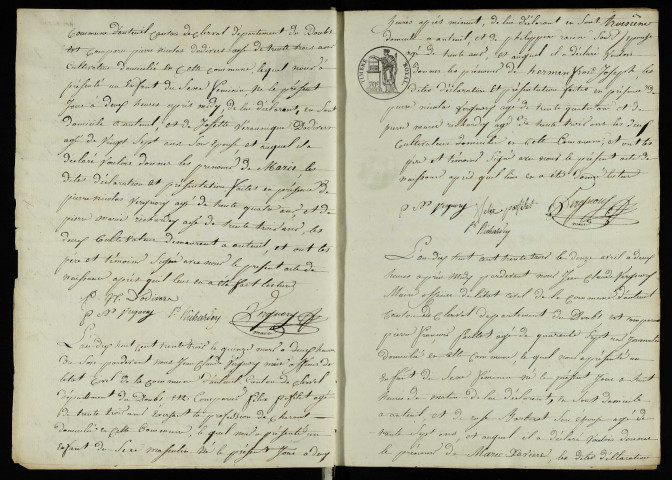 Commune d'auteuil canton de clerval département du Doubs
est comparu pierre nicolas Dodivers agé de trente trois ans
cultivateur domicilié en cette commune, lequel nous a
présenté un Enfant du Sexe féminin né le présent
Jour à deux heures après midy de lui déclarant, en Son
domicile a auteuil, et de Josette Véronique
agé de vingt Sept ans Son épouse, et auquel il a
déclaré Vouloir donner les prenoms de Marie les
dites déclaration et présentation faites en présence de
pierre Nicolas Verguey agé de trente quatre ans et de
pierre marie richardey agé de trente trois ans les
deux Cultivateur demeurant a auteuil, et ont les
père et témoins Signé avec nous le présent acte de
naissance après qu'il leur en a été fait lecture
P. N. Dodivers
P. N. Verguey P. Richardey Verguey
maire
L'an dix huit cent trente trois le quinze mars a deux heures
du Soir pardevant nous Jean Claude Verguey maire officier de
l'état civil de la commune d'auteuil canton de clerval
département du Doubs est Comparu felix profillet agé
de trente trois ans exerçant la profession de
domicilié en cette Commune, lequel nous a présenté un
enfant de Sexe masculin né le présent Jour à deux
heures après minuit, de lui déclarant en Son
domicile a auteuil, et de philippine Son épouse
agé de trente ans, et auquel il a déclaré Vouloir
donner les prénoms de Joseph, les
dites déclaration et présentation faites en présence de
pierre nicolas Verguey agé de trente quatre ans et de
pierre marie richardey agé de trente trois ans les deux
Cultivateur domicilié en cette Commune; et ont les
père et témoins Signé avec nous le présent acte de
naissance après qu'il leur en a été donné lecture
P N Verguey felix profillet Verguey
P. Richardey maire
L'an dix huit cent trente trois le douze avril a deux
heures après midy pardevant nous Jean Claude Verguey
Maire officier de l'état civil de la Commune d'auteuil
Canton de Clerval département du Doubs est comparu
pierre François agé de quarante Sept ans
domicilié en cette Commune lequel nous a présenté un
enfant de Sexe féminin né le présent Jour à huit
heures du matin de lui déclarant, en Son domicile
a auteuil et de Son épouse agé de
trente Sept ans et auquel il a déclaré Vouloir donner
le prenom de Marie les dites déclaration